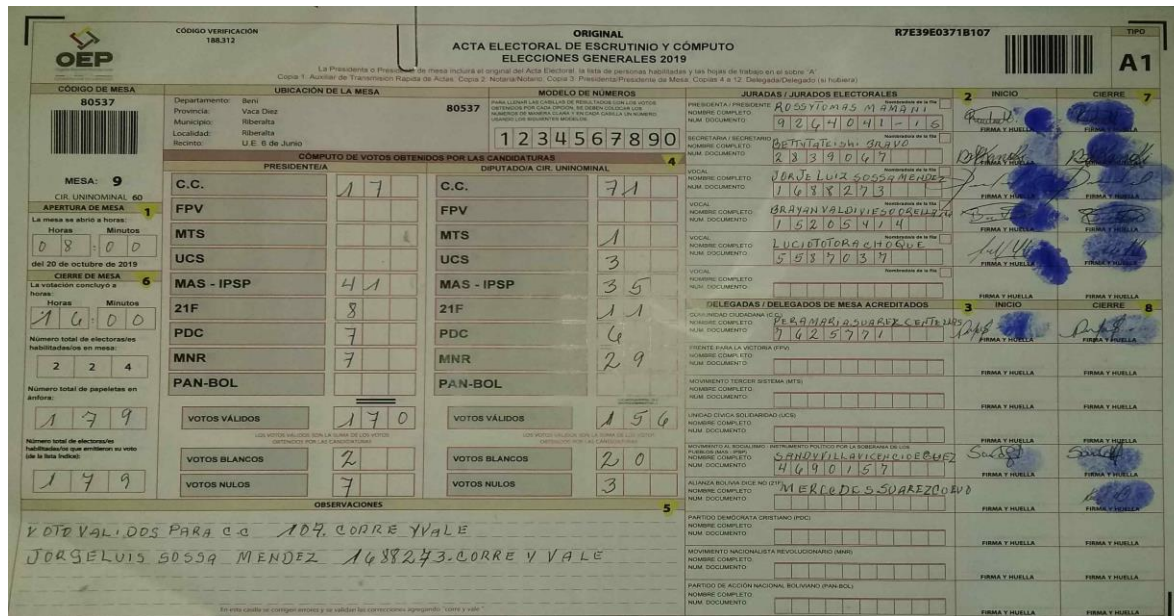 OEP
CÓDIGO VERIFICACIÓN
188.312
ORIGINAL
ACTA ELECTORAL DE ESCRUTINIO Y CÓMPUTO
ELECCIONES GENERALES 2019
La Presidenta o Presidente de mesa incluirá el original del Acta Electoral, la lista de personas habilitadas y las hojas de trabajo en el sobre "A"
Copia 1: Auxiliar de Transmisión Rápida de Actas. Copia 2: Notaria/Notario. Copia 3: Presidenta/Presidente de Mesa. Copias 4 a 12: Delegada/Delegado (si hubiera)
R7E39E0371B107
TIPO
A1
CÓDIGO DE MESA
80537
MESA: 9
CIR. UNINOMINAL 60
APERTURA DE MESA 1
La mesa se abrió a horas:
Horas Minutos
08:00
del 20 de octubre de 2019
CIERRE DE MESA 6
La votación concluyó a horas:
Horas Minutos
16:00
Número total de electoras/es habilitadas/os en mesa:
224
Número total de papeletas en ánfora:
179
Número total de electoras/es habilitadas/os que emitieron su voto (de la lista índice):
179
UBICACIÓN DE LA MESA
Departamento: Beni
Provincia: Vaca Diez
Municipio: Riberalta
Localidad: Riberalta
Recinto: U.E. 6 de Junio
80537
MODELO DE NÚMEROS
PARA LLENAR LAS CASILLAS DE RESULTADOS CON LOS VOTOS
OBTENIDOS POR CADA OPCIÓN, SE DEBEN COLOCAR LOS
NÚMEROS DE MANERA CLARA Y EN CADA CASILLA UN NÚMERO
USANDO LOS SIGUIENTES MODELOS:
1 2 3 4 5 6 7 8 9 0
CÓMPUTO DE VOTOS OBTENIDOS POR LAS CANDIDATURAS 4
PRESIDENTE/A
C.C. 17
FPV
MTS
UCS
MAS - IPSP 41
21F 8
PDC 7
MNR 7
PAN-BOL
VOTOS VÁLIDOS 170
LOS VOTOS VÁLIDOS SON LA SUMA DE LOS VOTOS
OBTENIDOS POR LAS CANDIDATURAS
VOTOS BLANCOS 2
VOTOS NULOS 7
DIPUTADO/A CIR. UNINOMINAL
C.C. 71
FPV
MTS 1
UCS 3
MAS - IPSP 35
21F 11
PDC 6
MNR 29
PAN-BOL
VOTOS VÁLIDOS 156
LOS VOTOS VÁLIDOS SON LA SUMA DE LOS VOTOS
OBTENIDOS POR LAS CANDIDATURAS
VOTOS BLANCOS 20
VOTOS NULOS 3
OBSERVACIONES 5
VOTO VALIDOS PARA C.C 107. CORRE Y VALE
JORGELUIS SOSSA MENDEZ 1688273. CORRE Y VALE
En esta casilla se corrigen errores y se validan las correcciones agregando "corre y vale"
JURADAS / JURADOS ELECTORALES
2 INICIO
CIERRE 7
PRESIDENTA / PRESIDENTE
NOMBRE COMPLETO ROSSYTOMAS MAMANI
NUM. DOCUMENTO 9264041-16
FIRMA Y HUELLA
FIRMA Y HUELLA
SECRETARIA / SECRETARIO
NOMBRE COMPLETO
NUM. DOCUMENTO 2839067
FIRMA Y HUELLA
FIRMA Y HUELLA
VOCAL
NOMBRE COMPLETO JORJE LUIZ SOSSA MENDEZ
NUM. DOCUMENTO 1688273
FIRMA Y HUELLA
FIRMA Y HUELLA
VOCAL
NOMBRE COMPLETO BRAYAN VALDIVIESO ORELLANA
NUM. DOCUMENTO 15205414
FIRMA Y HUELLA
FIRMA Y HUELLA
VOCAL
NOMBRE COMPLETO LUCIOTOTORACHOQUE
NUM. DOCUMENTO 5587037
FIRMA Y HUELLA
FIRMA Y HUELLA
VOCAL
NOMBRE COMPLETO
NUM. DOCUMENTO
FIRMA Y HUELLA
FIRMA Y HUELLA
DELEGADAS / DELEGADOS DE MESA ACREDITADOS
3 INICIO
CIERRE 8
COMUNIDAD CIUDADANA (CC)
NOMBRE COMPLETO
NUM. DOCUMENTO 7625771
FIRMA Y HUELLA
FIRMA Y HUELLA
FRENTE PARA LA VICTORIA (FPV)
NOMBRE COMPLETO
NUM. DOCUMENTO
FIRMA Y HUELLA
FIRMA Y HUELLA
MOVIMIENTO TERCER SISTEMA (MTS)
NOMBRE COMPLETO
NUM. DOCUMENTO
FIRMA Y HUELLA
FIRMA Y HUELLA
UNIDAD CÍVICA SOLIDARIDAD (UCS)
NOMBRE COMPLETO
NUM. DOCUMENTO
FIRMA Y HUELLA
FIRMA Y HUELLA
MOVIMIENTO AL SOCIALISMO - INSTRUMENTO POLÍTICO POR LA SOBERANÍA DE LOS
PUEBLOS (MAS - IPSP)
NOMBRE COMPLETO
NUM. DOCUMENTO 4690157
FIRMA Y HUELLA
FIRMA Y HUELLA
ALIANZA BOLIVIA DICE NO (21F)
NOMBRE COMPLETO MERCEDES SUAREZ
NUM. DOCUMENTO
FIRMA Y HUELLA
FIRMA Y HUELLA
PARTIDO DEMÓCRATA CRISTIANO (PDC)
NOMBRE COMPLETO
NUM. DOCUMENTO
FIRMA Y HUELLA
FIRMA Y HUELLA
MOVIMIENTO NACIONALISTA REVOLUCIONARIO (MNR)
NOMBRE COMPLETO
NUM. DOCUMENTO
FIRMA Y HUELLA
FIRMA Y HUELLA
PARTIDO DE ACCIÓN NACIONAL BOLIVIANO (PAN-BOL)
NOMBRE COMPLETO
NUM. DOCUMENTO
FIRMA Y HUELLA
FIRMA Y HUELLA